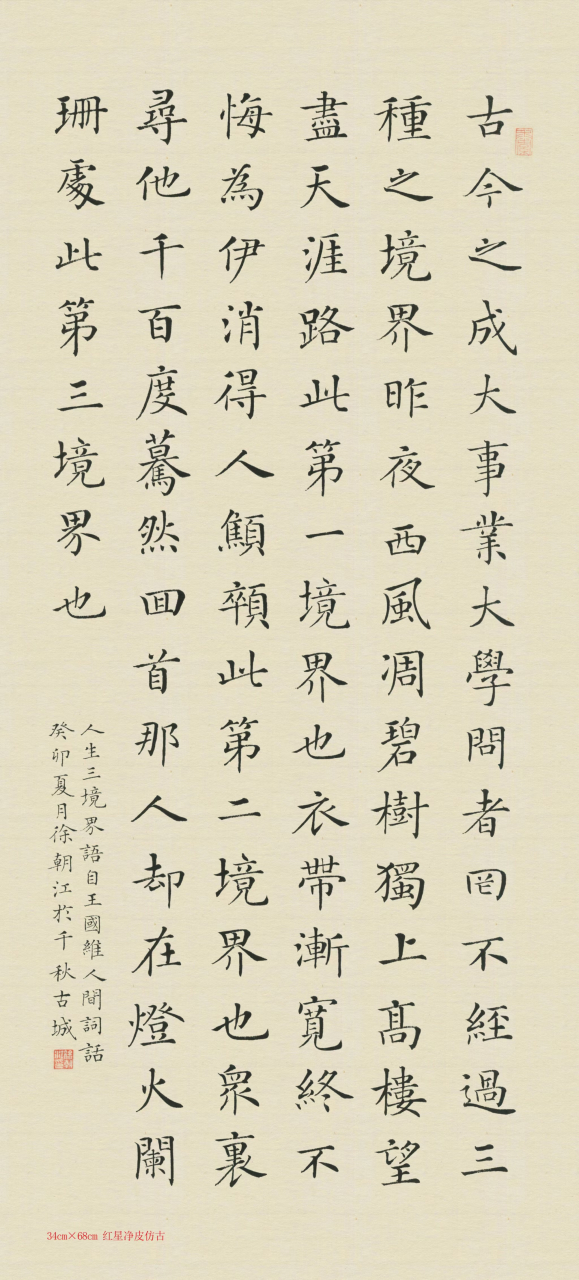 古今之成大事業大學問者罔不經過三
種之境界昨夜西風凋碧樹獨上高樓望
盡天涯路此第一境界也衣帶漸寬終不
悔為伊消得人顦顇此第二境界也眾裏
尋他千百度驀然回首那人却在燈火闌
珊處此第三境界也
人生三境界語自王國維人間詞話
癸卯夏月徐朝江於千秋古城
34cm×68cm 红星净皮仿古